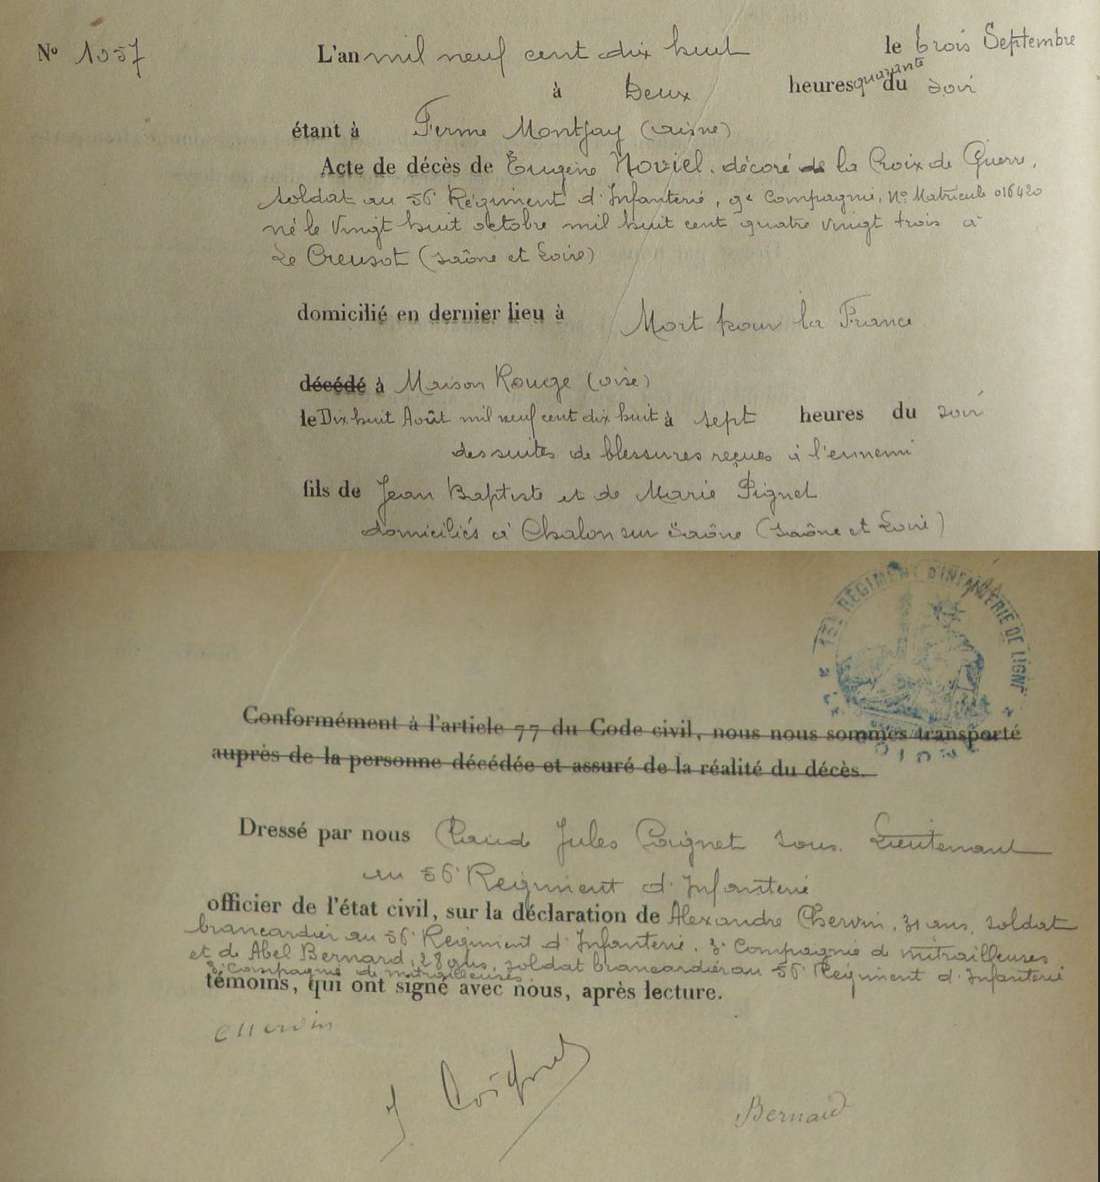 N° 1057 L'an mil neuf cent dix huit le trois Septembre
à Deux heures quarante du soir
étant à Ferme Montjay (aisne)
Acte de décès de Eugène Noviel, décoré de la Croix de Guerre,
soldat au 56e Régiment d'Infanterie, 9e Compagnie, N° Matricule 016420
né le Vingt huit octobre mil huit cent quatre vingt trois à
Le Creusot (Saône et Loire)
domicilié en dernier lieu à Mort pour la France
décédé à Maison Rouge (oise)
le Dix huit Août mil neuf cent dix huit à sept heures du soir
des suites de blessures reçues à l'ennemi
fils de Jean Baptiste et de Marie Pignet
domiciliés à Chalon sur Saône (Saône et Loire)
RÉGIMENT D'INFANTERIE DE LIGNE
Conformément à l'article 77 du Code civil, nous nous sommes transporté
auprès de la personne décédée et assuré de la réalité du décès.
Dressé par nous Claude Jules Coignet sous-Lieutenant
au 56e Régiment d'Infanterie
officier de l'état civil, sur la déclaration de Alexandre Chervin, 31 ans, soldat
brancardier au 56e Régiment d'Infanterie, 3e Compagnie de mitrailleuses
et de Abel Bernard, 28 ans, soldat brancardier au 56e Régiment d'Infanterie
3e Compagnie de mitrailleuses
témoins, qui ont signé avec nous, après lecture.
Chervin
J. Coignet
Bernard